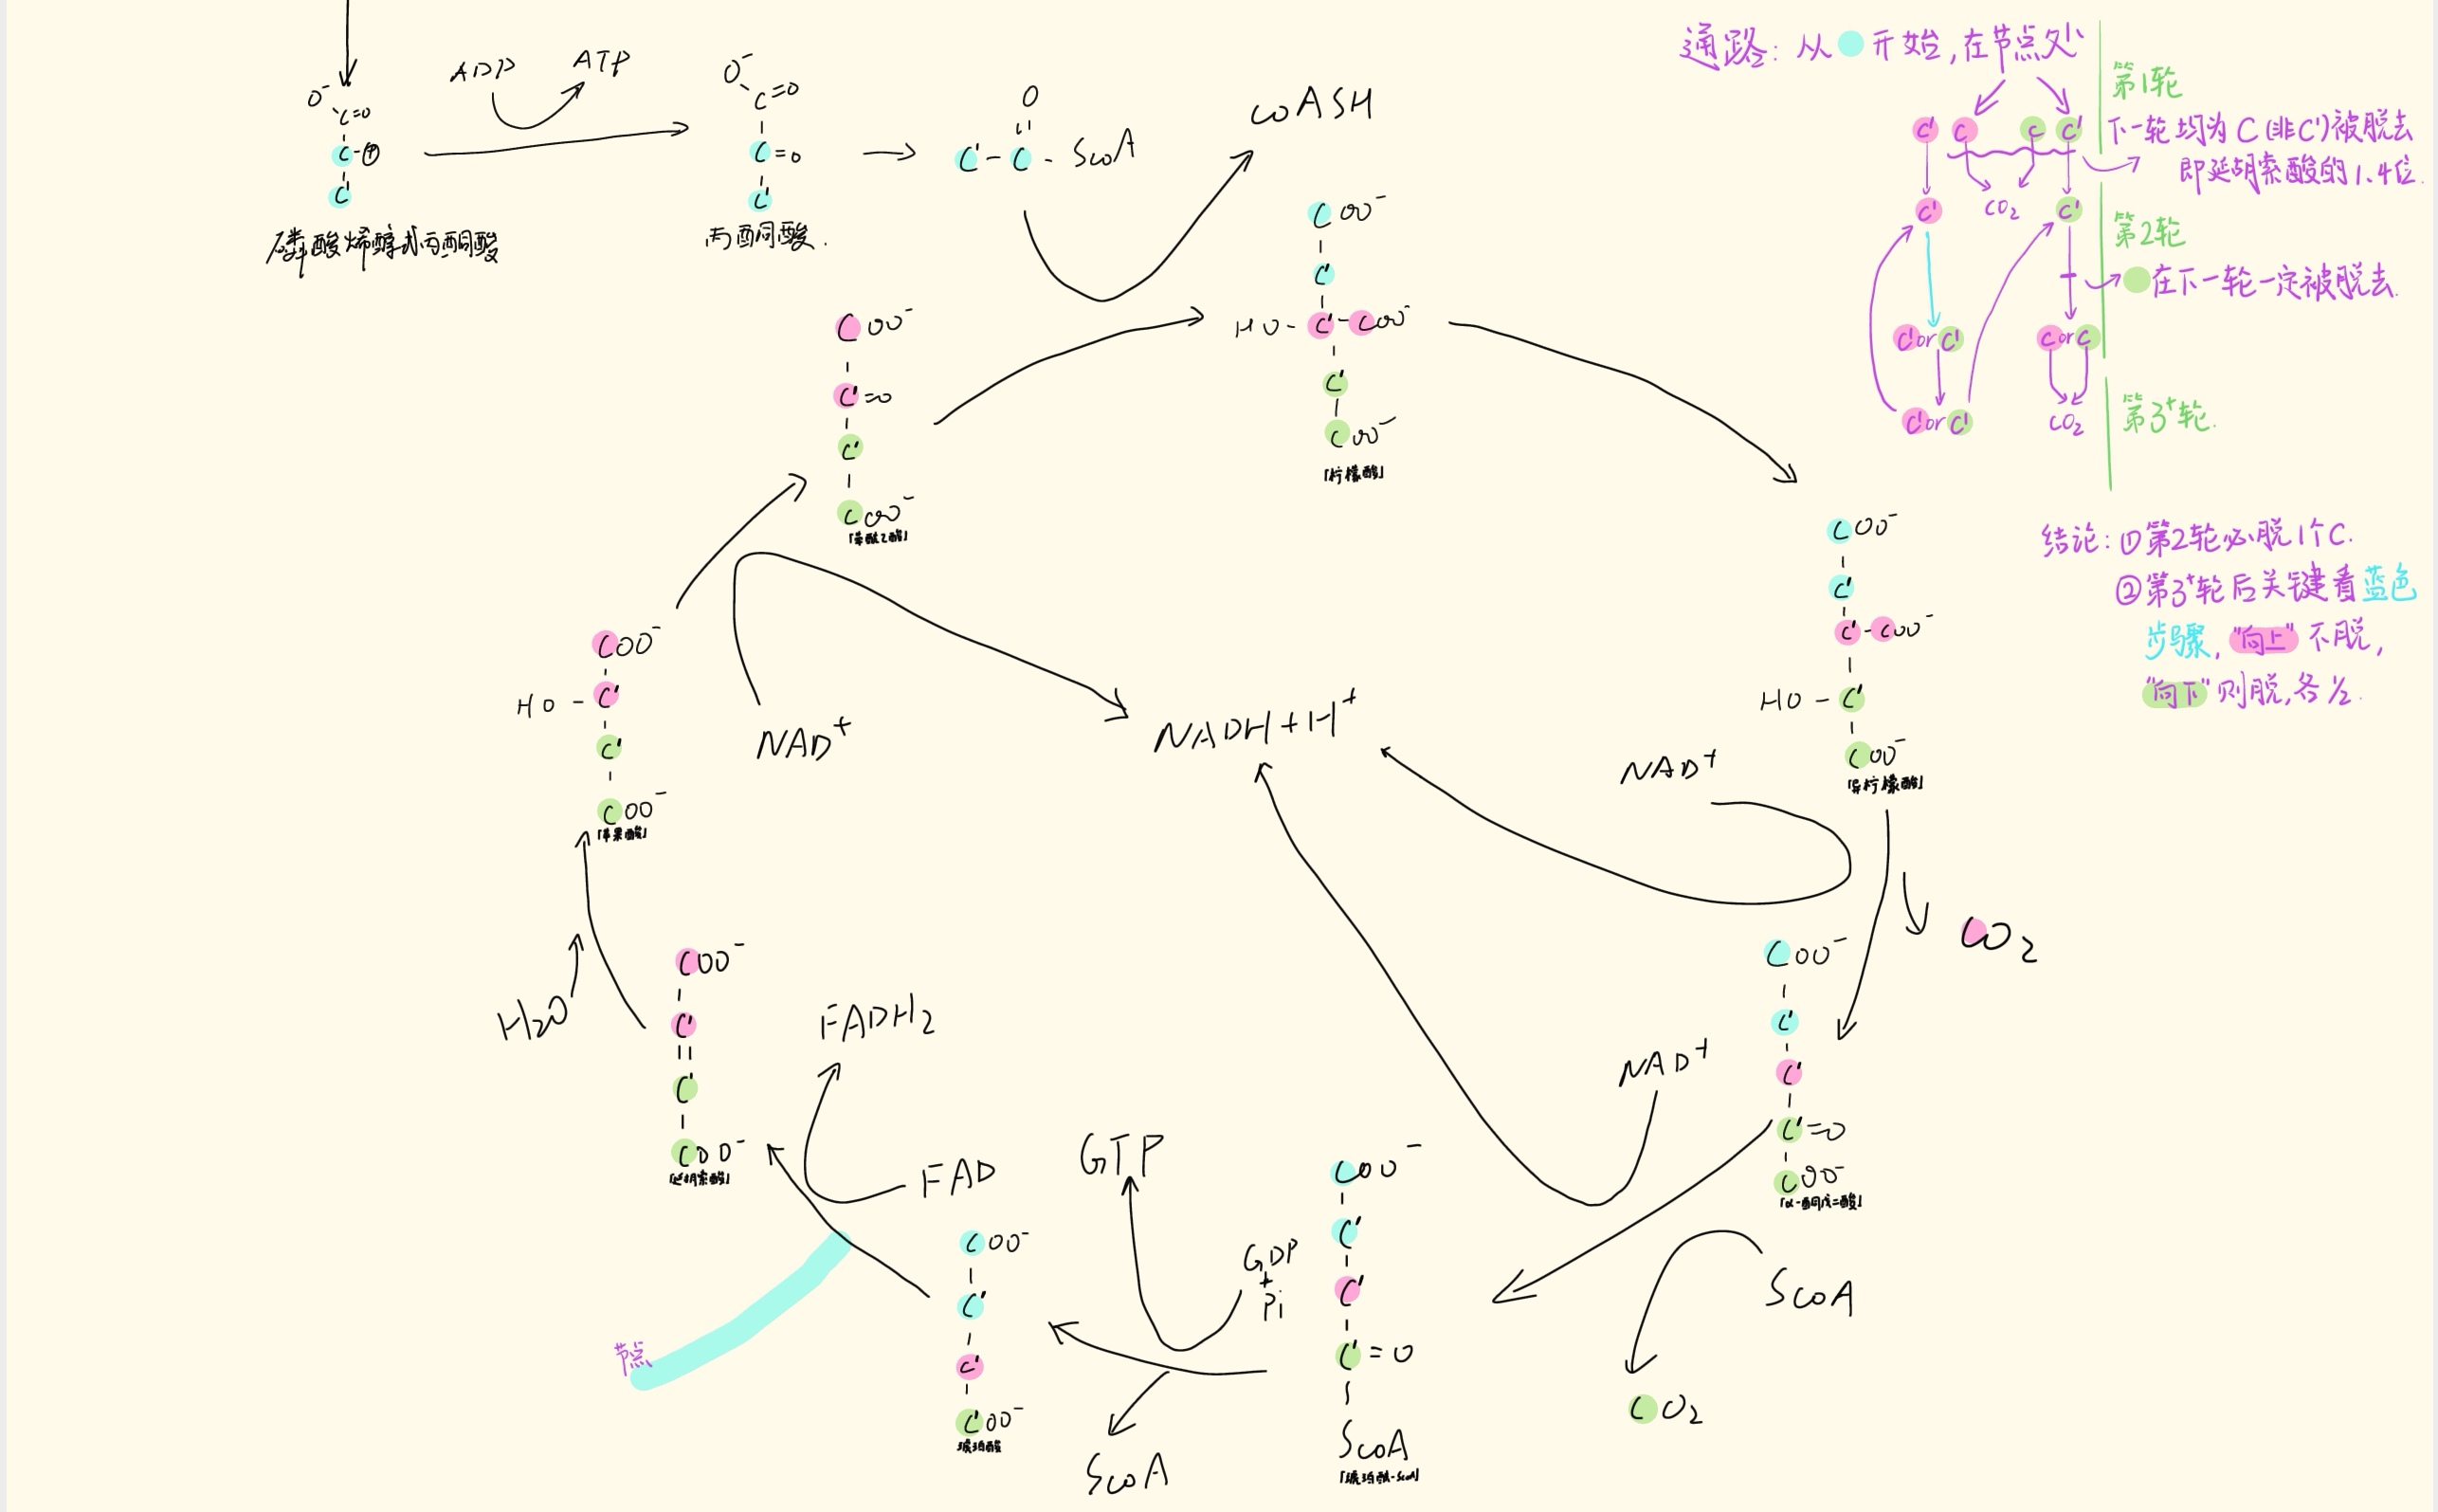 ADP
ATP
O⁻
C=O
C-Ⓟ
C'
磷酸烯醇式丙酮酸
O⁻
C=O
C=O
C'
丙酮酸.
O
C'-C-ScoA
coASH
COO⁻
C'
HO-C'-COO⁻
C'
COO⁻
「柠檬酸」
COO⁻
C'=O
C'
COO⁻
「草酰乙酸」
COO⁻
HO-C'
C'
COO⁻
「苹果酸」
NAD⁺
NADH+H⁺
COO⁻
C'
C'-COO⁻
HO-C'
COO⁻
「异柠檬酸」
NAD⁺
CO₂
COO⁻
C'
C'
C'=O
COO⁻
「α-酮戊二酸」
NAD⁺
ScoA
CO₂
COO⁻
C'
C'
C'=O
ScoA
「琥珀酰-ScoA」
GTP
GDP
+
Pi
ScoA
COO⁻
C'
C'
C'OO⁻
琥珀酸
FAD
FADH₂
节点
COO⁻
C'
C'
COO⁻
「延胡索酸」
H₂O
通路: 从 开始,在节点处
C' C C C'
第1轮
下一轮均为C(非C')被脱去
即延胡索酸的1.4位.
C' CO₂ C'
第2轮
在下一轮一定被脱去.
C'orC' CorC
C'orC' CO₂
第3⁺轮.
结论: ①第2轮必脱1个C.
②第3⁺轮后关键看蓝色
步骤, "向上"不脱,
"向下"则脱,各1/2.